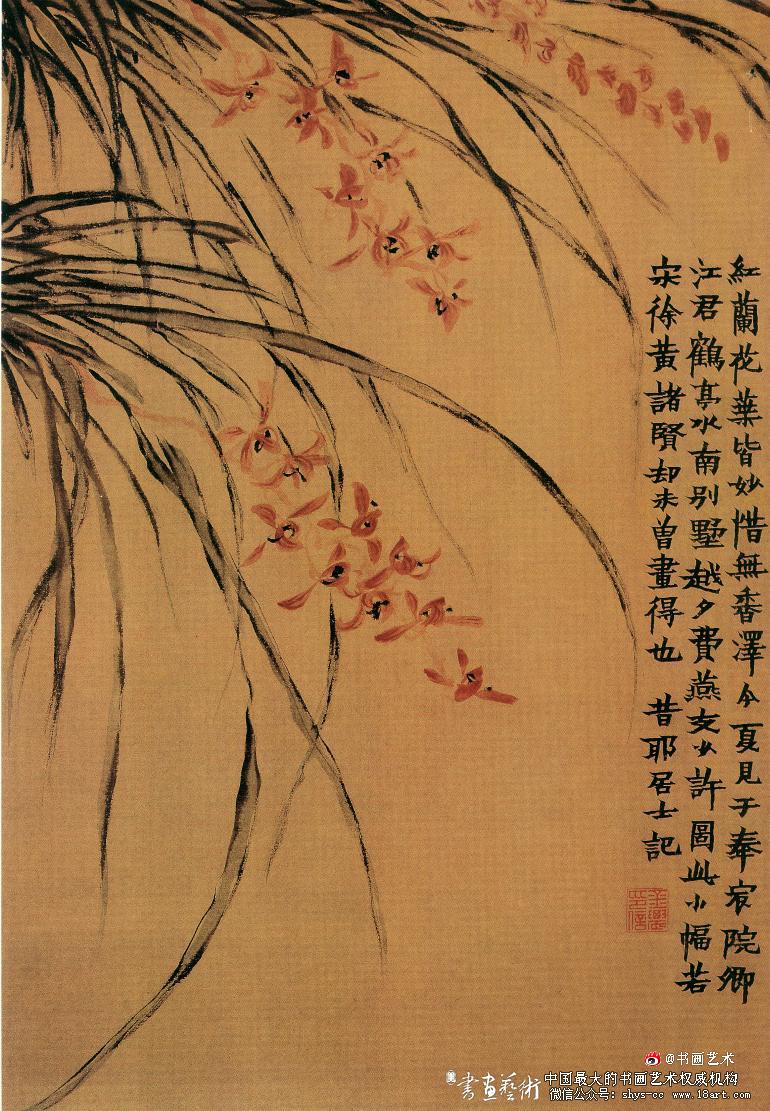 紅蘭花葉皆妙惜無香澤今夏見于奉宸院卿
江君鶴亭水南别墅越夕費燕支少許圖此小幅若
宋徐黃諸賢却未曾畫得也 昔耶居士記
金農印信
@书画艺术
書畫藝術
中国最大的书画艺术权威机构
微信公众号: shys-cc www.18art.com